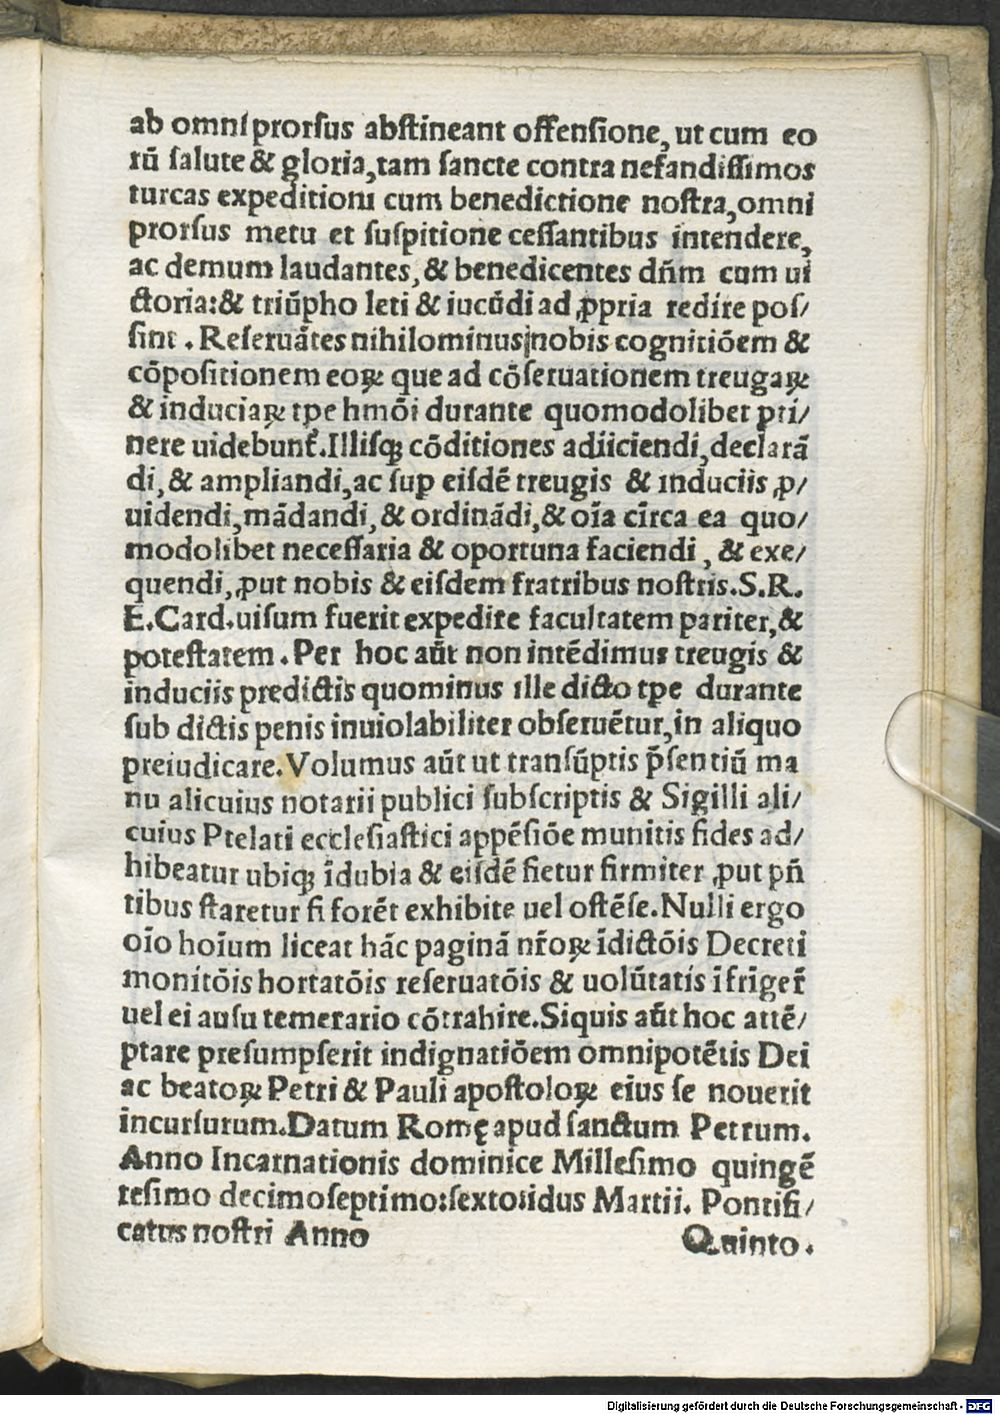 ab omni prorſus abſtineant offenſione, ut cum eo
rū ſalute & gloria, tam ſancte contra nefandiſſimos
turcas expeditioni cum benedictione noſtra, omni
prorſus metu et ſuſpitione ceſſantibus intendere,
ac demum laudantes, & benedicentes dn̄m cum ui
ctoria: & triūpho leti & iucūdi ad ꝓpria redire poſ/
ſint . Reſeruātes nihilominus nobis cognitiōem &
cōpoſitionem eoꝝ que ad cōſeruationem treugaꝝ
& induciaꝝ tꝑe hmōi durante quomodolibet ꝑti/
nere uidebunt᷑. Illiſqꝫ cōditiones adiiciendi, declarā
di, & ampliandi, ac ſuꝑ eiſdē treugis & induciis ꝓ/
uidendi, mādandi, & ordinādi, & oīa circa ea quo/
modolibet neceſſaria & oportuna faciendi , & exe/
quendi, ꝓut nobis & eiſdem fratribus noſtris. S. R.
E. Card. uiſum fuerit expedire facultatem pariter, &
poteſtatem . Per hoc aūt non intēdimus treugis &
induciis predictis quominus ille dicto tꝑe durante
ſub dictis penis inuiolabiliter obſeruētur, in aliquo
preiudicare. Volumus aūt ut tranſūptis p̄ſentiū ma
nu alicuius notarii publici ſubſcriptis & Sigilli ali/
cuius Prelati eccleſiaſtici appēſiōe munitis fides ad/
hibeatur ubiqꝫ īdubia & eiſdē ſtetur firmiter ꝓut pn̄
tibus ſtaretur ſi forēt exhibite uel oſtēſe. Nulli ergo
oīo hoīum liceat hāc paginā nr̄oꝝ īdictōis Decreti
monitōis hortatōis reſeruatōis & uolūtatis īfrīger̄
uel ei auſu temerario cōtrahire. Siquis aūt hoc attē/
ptare preſumpſerit indignatiōem omnipotētis Dei
ac beatoꝝ Petri & Pauli apoſtoloꝝ eius ſe nouerit
incurſurum. Datum Romę apud ſanctum Petrum.
Anno Incarnationis dominice Milleſimo quingē
teſimo decimoſeptimo: ſexto: idus Martii. Pontifi/
catus noſtri Anno Quinto.
Digitalisierung gefördert durch die Deutsche Forschungsgemeinschaft - DFG